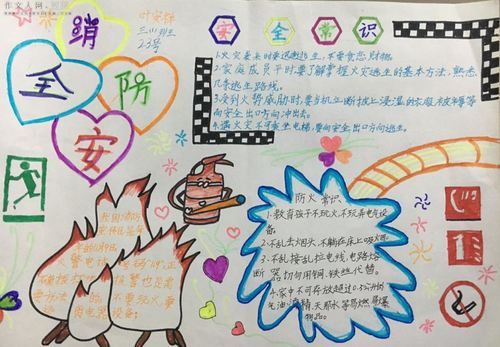 作文人网
消
防
安
全
三(1)班
23号
安全常识
1.火灾袭来时要迅速逃生,不要贪恋财物。
2.家庭成员平时要了解掌握火灾逃生的基本方法,熟悉
几条逃生路线。
3.受到火势威胁时,要当机立断披上浸湿的衣服、被褥等
向安全出口方向冲出去。
4.遇火灾不可乘坐电梯,要向安全出口方向逃生。
防火常识
1.教育孩子不玩火,不玩弄电气设
备。
2.不乱丢烟头,不躺在床上吸烟。
3.不乱接乱拉电线,电路熔
断器切勿用铜、铁丝代替。
4.家中不可存放超过0.5公升的
汽油、酒精、天那水等易燃易爆
物品。
我国消防
宣传日是每
年的11月9日
火警电话